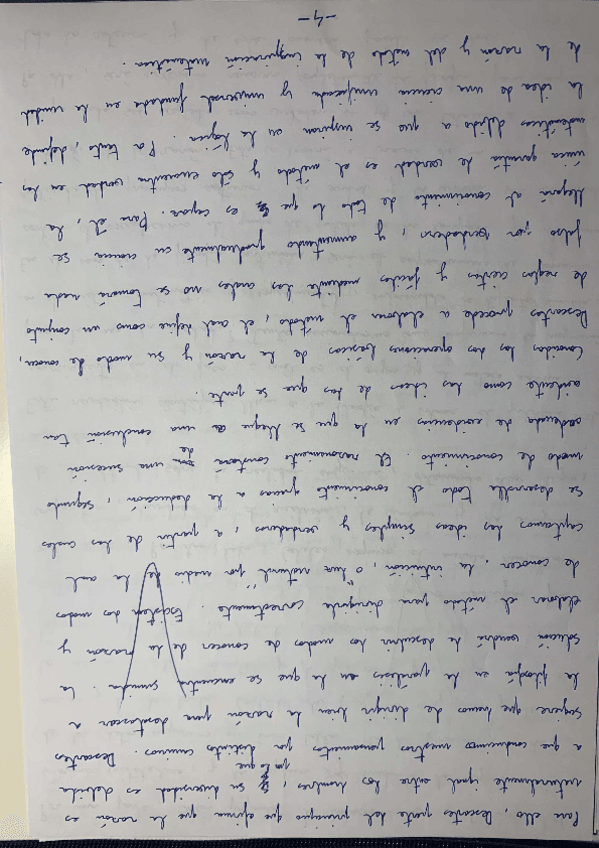 Para ello, Descartes parte del principio que afirma que la razón es
naturalmente igual entre los hombres, por lo que su diversidad es debida
a que conducimos nuestros pensamientos por distintos caminos. Descartes
sugiere que hemos de dirigir bien la razón para desatascar a
la filosofía en la parálisis en la que se encuentra sumida. La
solución vendrá de descubrir los modos de conocer de la razón y
elaborar el método para dirigirla correctamente. Existen dos modos
de conocer. La intuición, o "luz natural" por medio de la cual
captamos las ideas simples y verdaderas, a partir de las cuales
se desarrolla todo el conocimiento gracias a la deducción, segundo
modo de conocimiento. El razonamiento constará de una sucesión
ordenada de evidencias en la que se llegue a una conclusión tan
evidente como las ideas de las que se parte.
Conocidas las dos operaciones básicas de la razón y su modo de conocer,
Descartes procede a elaborar el método, el cual define como un conjunto
de reglas ciertas y fáciles mediante las cuales no se tomará nada
falso por verdadero, y aumentando gradualmente su ciencia se
llegará al conocimiento de todo lo que es capaz. Para él, la
única garantía de verdad es el método y sólo encuentra verdad en las
matemáticas debido a que se inspiran en la lógica. Por tanto, defiende
la idea de una ciencia unificada y universal fundada en la unidad
de la razón y del método de la inspiración matemática.
-4-